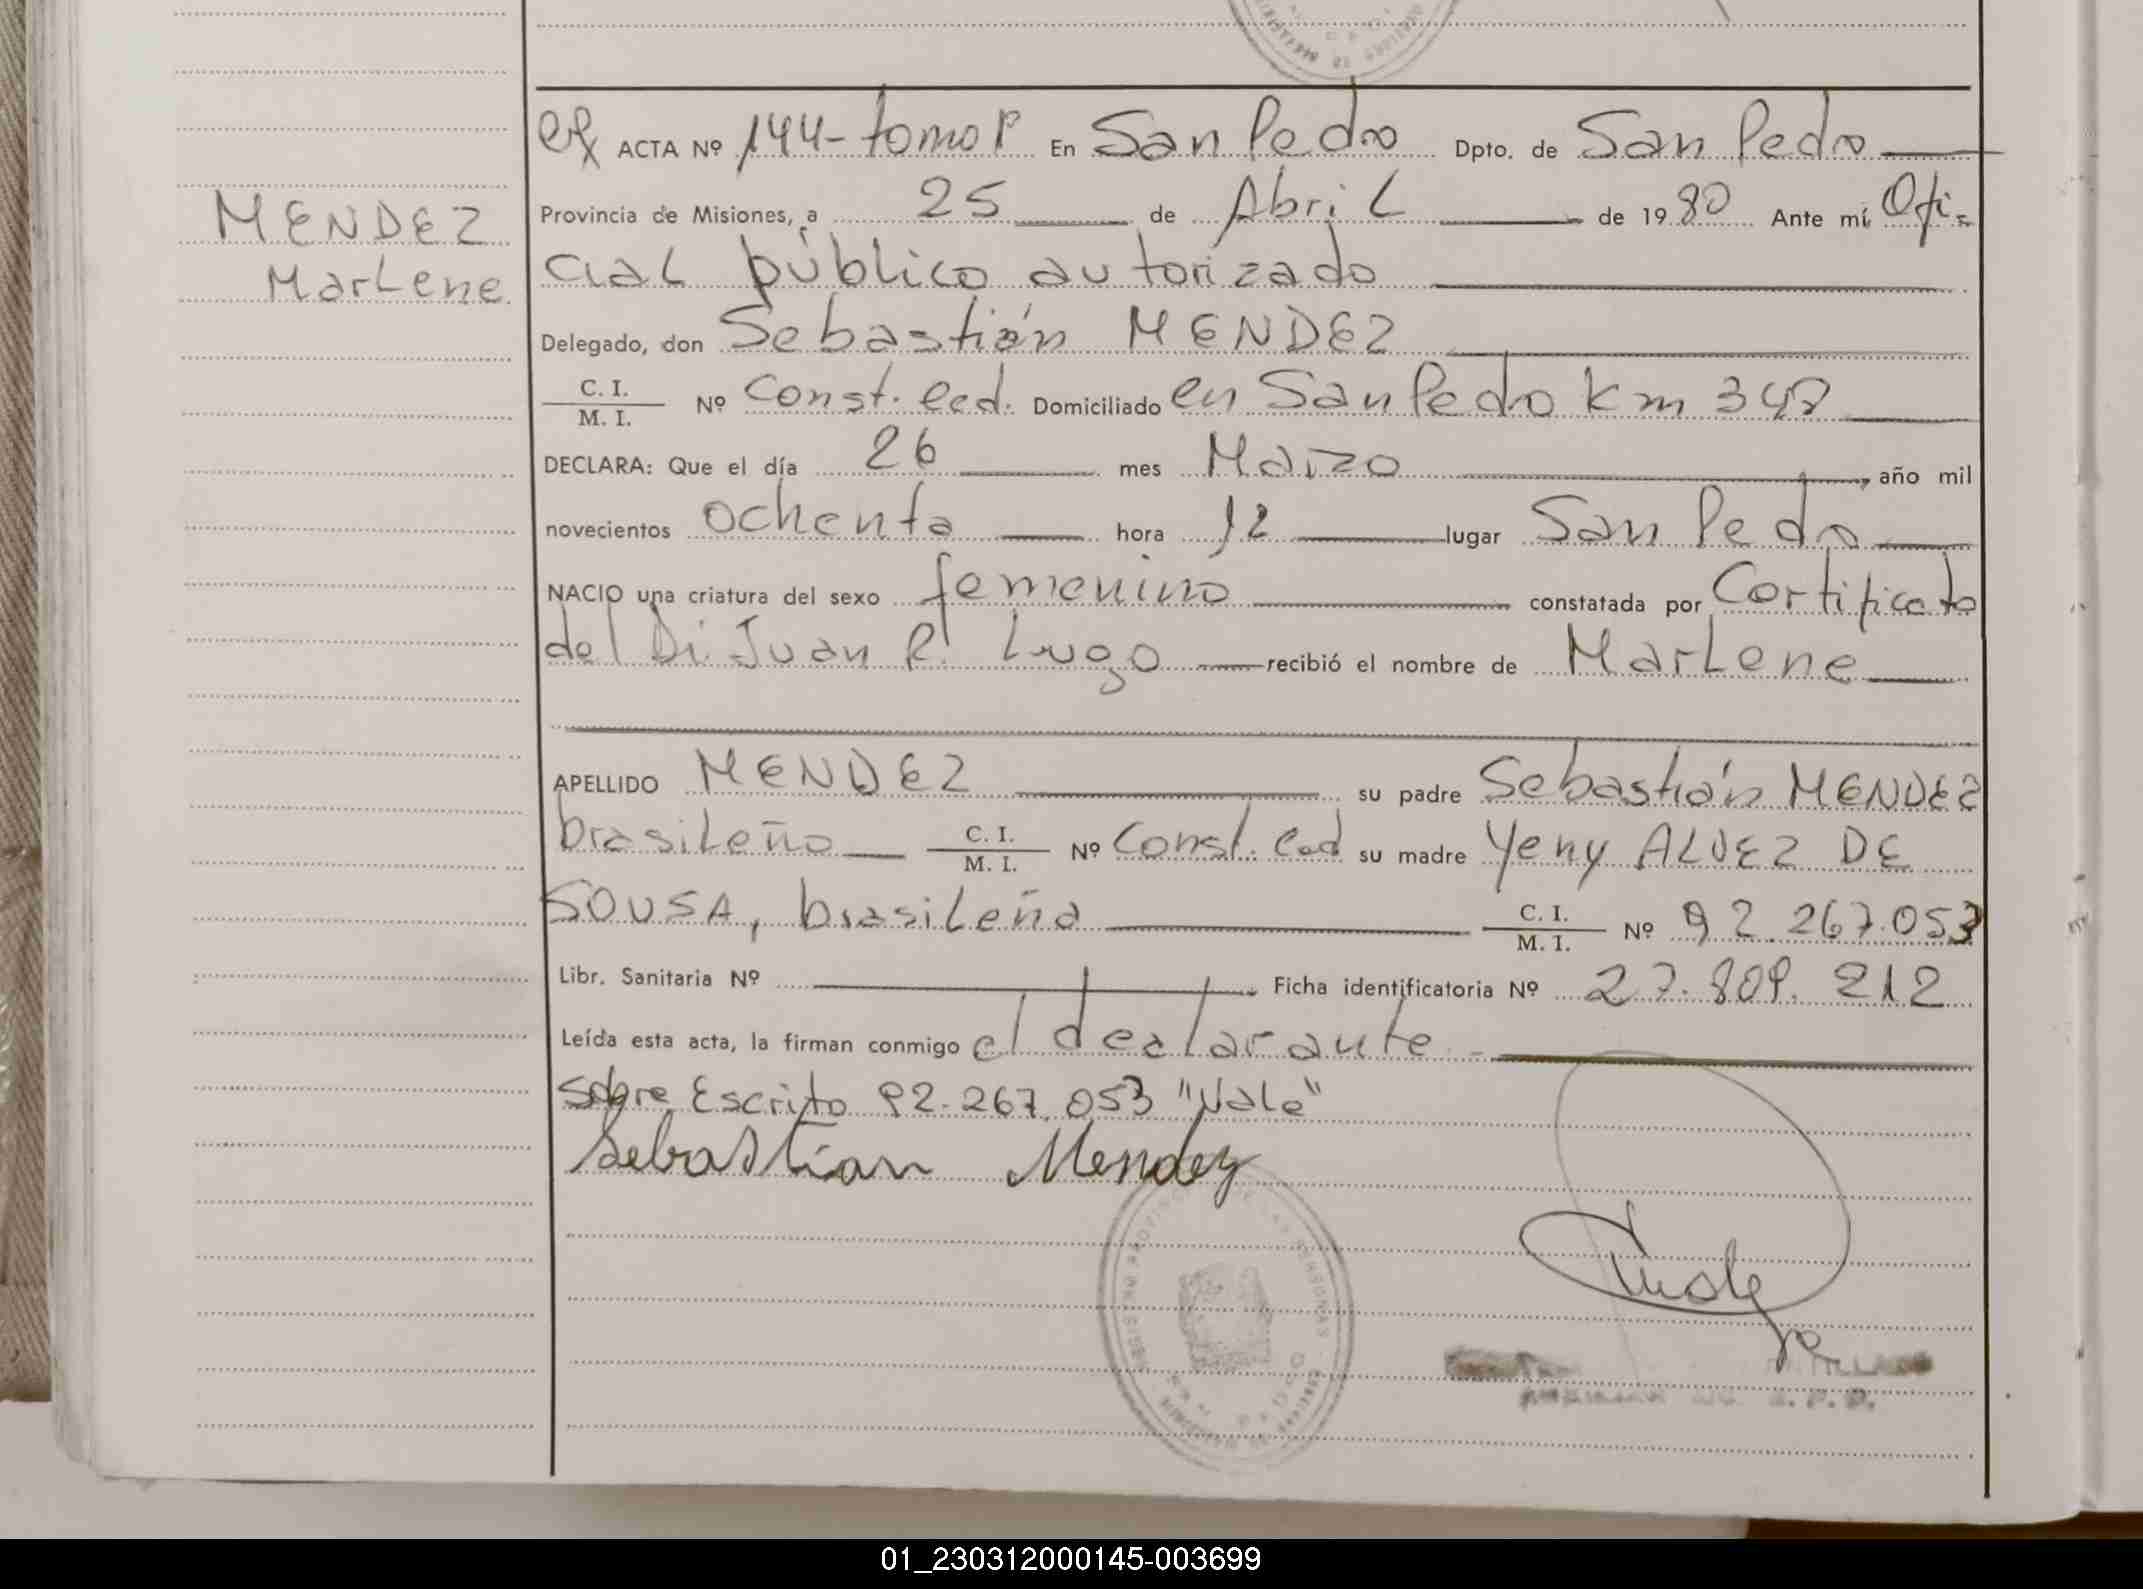 MENDEZ
Marlene
ACTA Nº 144 - tomo 1º En San Pedro Dpto. de San Pedro
Provincia de Misiones, a 25 de Abril de 1980 Ante mí, Ofi-
cial público autorizado
Delegado, don Sebastián MENDEZ
C. I. / M. I. Nº Const. ced. Domiciliado en San Pedro Km 347
DECLARA: Que el día 26 mes Marzo, año mil
novecientos ochenta hora 12 lugar San Pedro
NACIO una criatura del sexo femenino constatada por Certificado
del Dr. Juan R. Lugo recibió el nombre de Marlene
APELLIDO MENDEZ su padre Sebastián MENDEZ
brasileño C. I. / M. I. Nº Const. Ced su madre Yeny ALVEZ DE
SOUSA, brasileña C. I. / M. I. Nº 92.267.053
Libr. Sanitaria Nº Ficha identificatoria Nº 27.809.212
Leída esta acta, la firman conmigo el declarante
Sobre Escrito 92.267.053 "Vale"
Sebastian Mendez
01_230312000145-003699